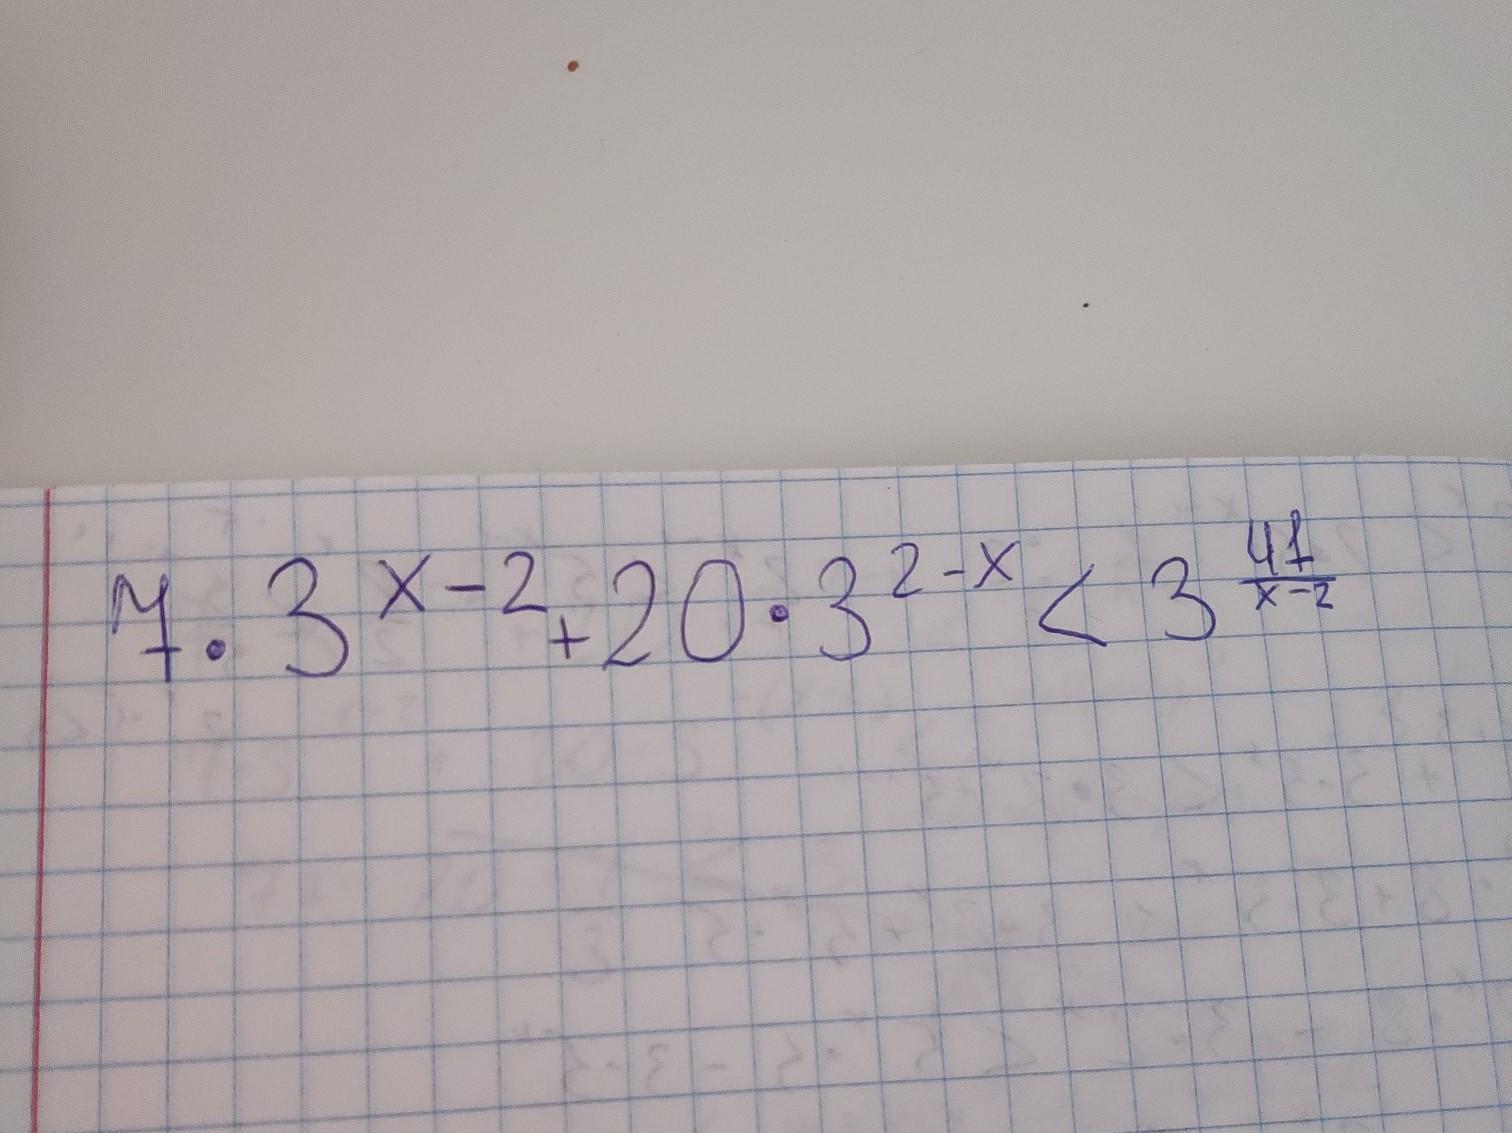 7·3^{x-2}+20·3^{2-x}<3^{\frac{41}{x-2}}